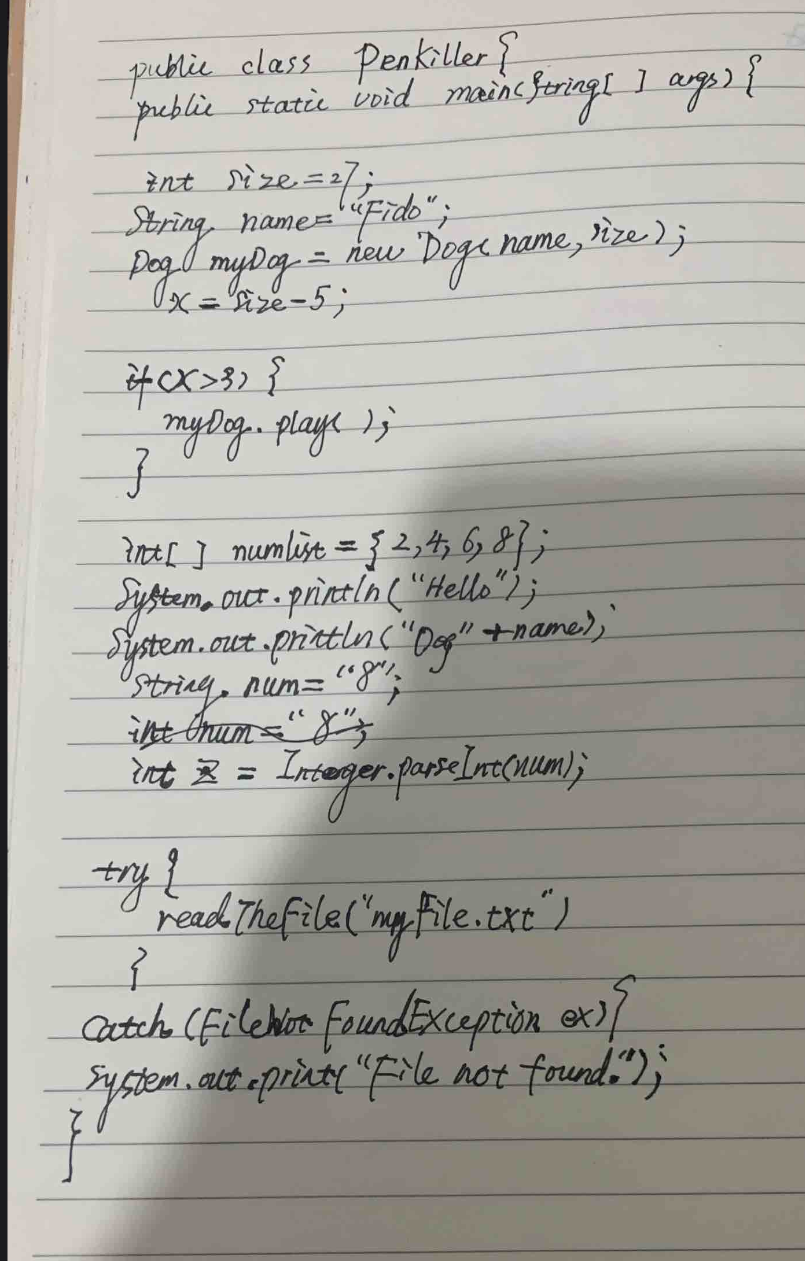 public class Penkiller{
public static void main(String[ ] args) {
int size = 27;
String name = "Fido";
Dog myDog = new Dog( name, size );
x = size - 5;
if (x > 3) {
myDog. play( );
}
int [ ] numlist = { 2, 4, 6, 8 };
System. out. println( "Hello" );
System. out. println( "Dog" + name );
String num = "8";
int num = "8";
int z = Integer.parseInt(num);
try {
readTheFile("myFile.txt")
}
catch (FileNotFoundException ex) {
System. out. print( "File not found." );
}